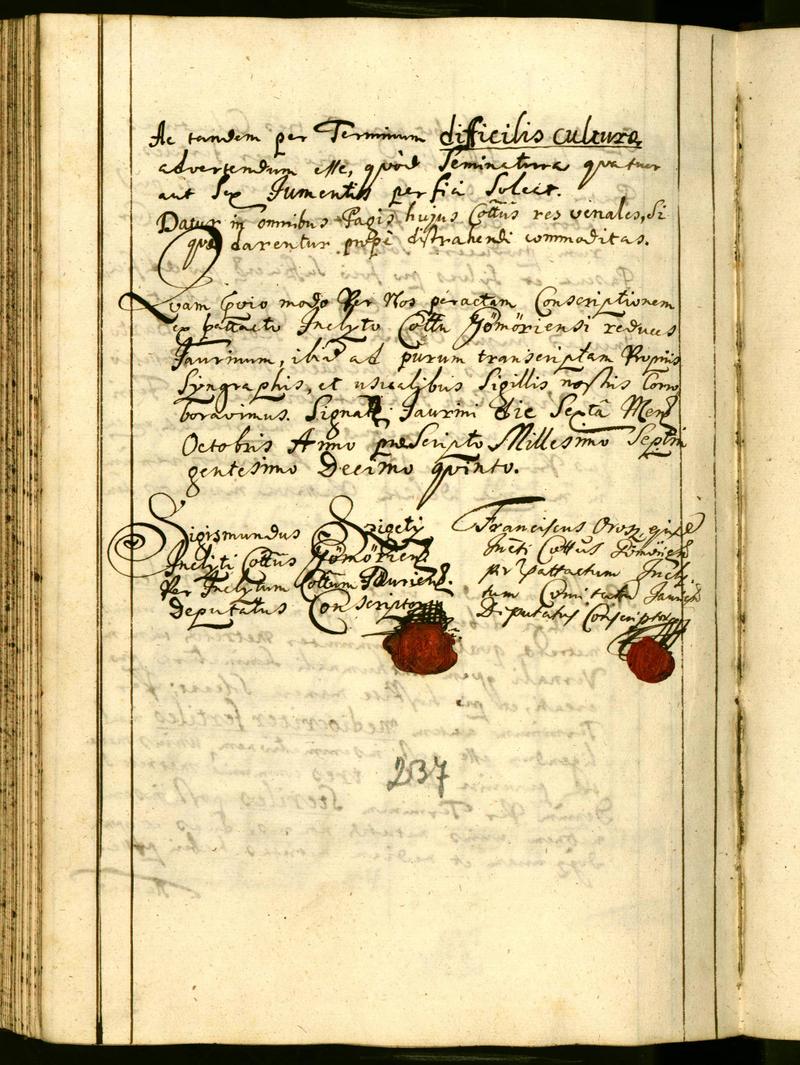 Ac tandem per Terminum difficilis cultura,
advertendum esse, quòd Seminatura quatuor
aut Sex Jumentis perfici Soleat.
Datur in omnibus Pagis hujus Cottus res venales, Si
quæ darentur distrahendi commoditas.
Quam modo Per Nos peractam Conscriptionem
ex Inclyto Cottu Gömöriensi reduces
Jaurinum, ibiq ad purum transcriptam Propriis
Syngraphis, et usualibus Sigillis nostris Corro
boravimus. Signat: Jaurini die Sexta Mens
Octobris Anno præscripto Millesimo Septin
gentesimo Decimo quinto.
Sigismundus Szigety
Inclyti Cottus Gömöriens
Per Inclytum Cottum Jauriens.
deputatus Conscriptor
Franciscus Orosz, ejusd
Incti Cottus Gömöriens
per Incly
tum Comitatu Jauriens
Deputatus Conscriptor
237